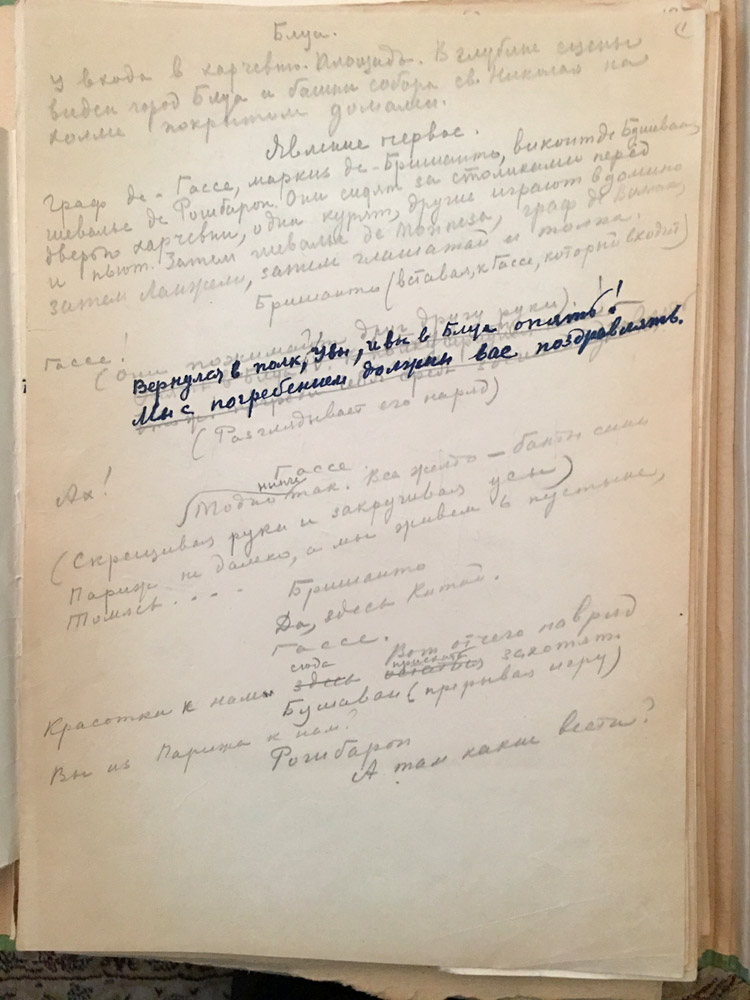 (1
Блуа.
У входа в харчевню. Площадь. В глубине сцены
виден город Блуа и башни собора св. Николая на
холме покрытом домами.
Явление первое.
Граф де-Гассе, маркиз де-Бришанто, виконт де Бушаван,
шевалье де Рошбарон. Они сидят за столиками перед
дверью харчевни, одни курят, другие играют в домино
и пьют. Затем шевалье де Монпеза, граф де
затем Ланжели, затем глашатай и толпа.
Бришанто (вставая, к Гассе, который входит)
Гассе!
(Они пожимают друг другу руки).
Вернулся в полк, Увы, и вы в Блуа опять!
Мы с погребением должны вас поздравлять.
(Разглядывает его наряд)
Ах!
Гассе
Модно так. Все желто – банты сини
(Скрещивая руки и закручивая усы)
Париж не далеко, а мы живем в пустыне,
Томясь....
Бришанто
Да, здесь Китай.
Гассе.
Вот отчего навряд
сюда
Красотки к нам здесь захотят.
Бушаван (прерывая игру)
Вы из Парижа к нам?
Рошбарон
А там какие вести?